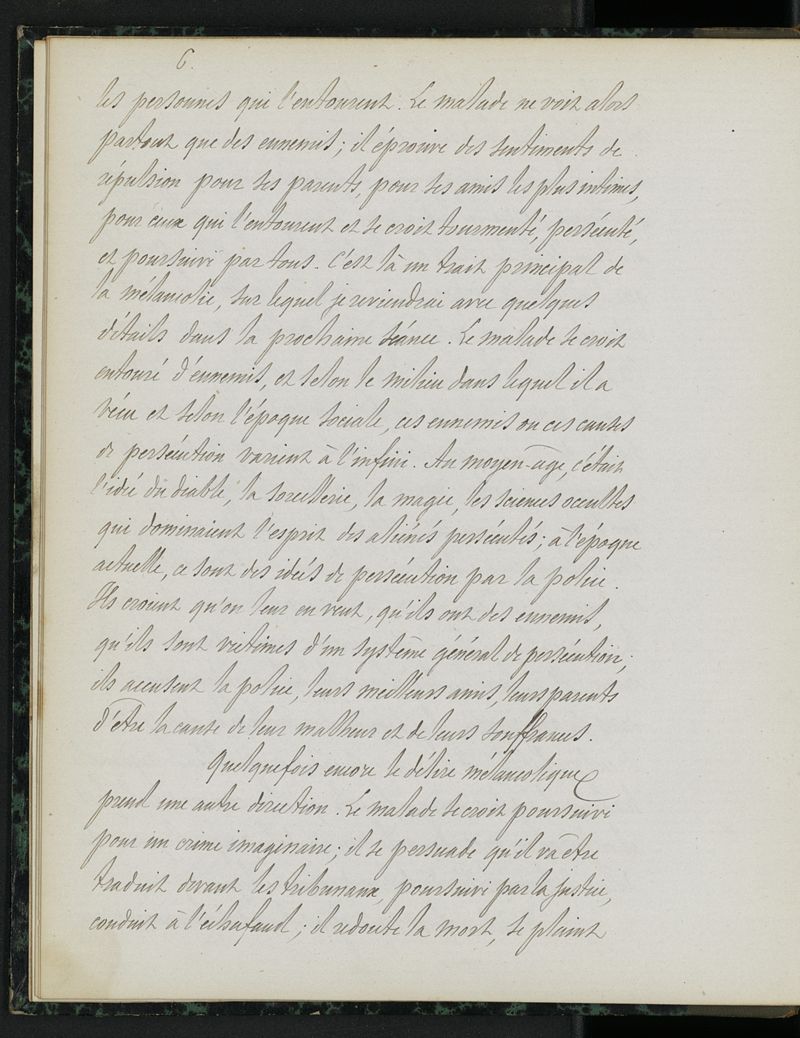 6.
les personnes qui l'entourent. Le malade ne voit alors
partout que des ennemis; il éprouve des sentiments de
répulsion pour ses parents, pour ses amis les plus intimes,
pour ceux qui l'entourent et se croit tourmenté, persécuté,
et poursuivi par tous. C'est là un trait principal de
la mélancolie, sur lequel je reviendrai avec quelques
détails dans la prochaine séance. Le malade se croit
entouré d'ennemis, et selon le milieu dans lequel il a
vécu et selon l'époque sociale, ces ennemis ou ces causes
de persécution varient à l'infini. Au moyen-âge, c'était
l'idée du diable, la sorcellerie, la magie, les sciences occultes
qui dominaient l'esprit des aliénés persécutés; à l'époque
actuelle, ce sont des idées de persécution par la police.
Ils croient qu'on leur en veut, qu'ils ont des ennemis,
qu'ils sont victimes d'un système général de persécution;
ils accusent la police, leurs meilleurs amis, leurs parents
d'être la cause de leur malheur et de leurs souffrances.
Quelquefois encore le délire mélancolique
prend une autre direction. Le malade se croit poursuivi
pour un crime imaginaire; il se persuade qu'il va être
traduit devant les tribunaux, poursuivi par la justice,
conduit à l'échafaud; il redoute la mort, se plaint